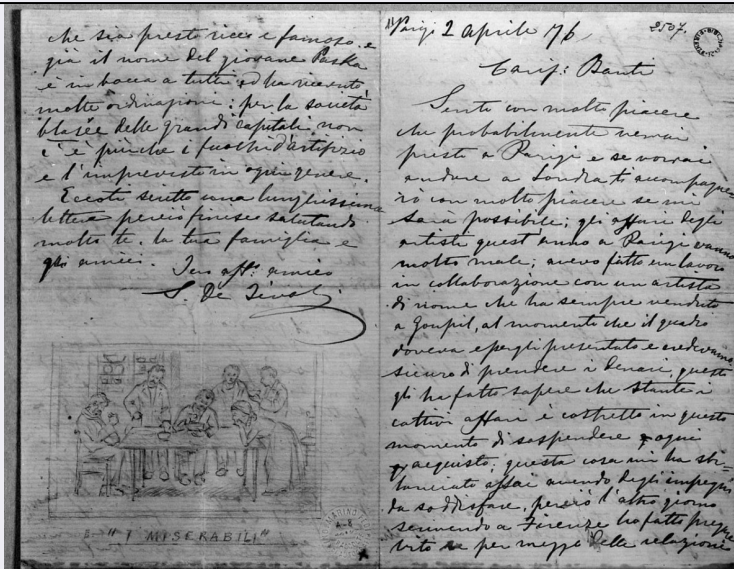 che sia presto ricco e famoso. e
già il nome del giovane Paska
è in bocca a tutti ed ha ricevuto
molte ordinazioni; per la società
blasée delle grandi capitali non
c'è più che i fuochi d'artifizio
e l'imprevisto in ogni genere.
Eccoti scritto una lunghissima
lettera perciò finisco salutando
molto te, la tua famiglia e
gli amici. Tuo aff: amico
S. De Tivoli
"I MISERABILI"
Parigi 2 aprile 76
2507.
Caris: Banti
Sento con molto piacere
che probabilmente verrai
presto a Parigi e se vorrai
andare a Londra ti accompagne-
rò con molto piacere se mi
sarà possibile; gli affari degli
artisti quest'anno a Parigi vanno
molto male; avevo fatto un lavoro
in collaborazione con un artista
di nome che ha sempre venduto
a Goupil, al momento che il quadro
doveva essergli presentato e credevamo
sicuro di prendere i denari, questo
gli ha fatto sapere che stante i
cattivi affari è costretto in questo
momento di sospendere ogni
acquisto; questa cosa mi ha sbi-
lanciato assai avendo degli impegni
da soddisfare, perciò l'altro giorno
scrivendo a Firenze ho fatto
per mezzo delle relazioni